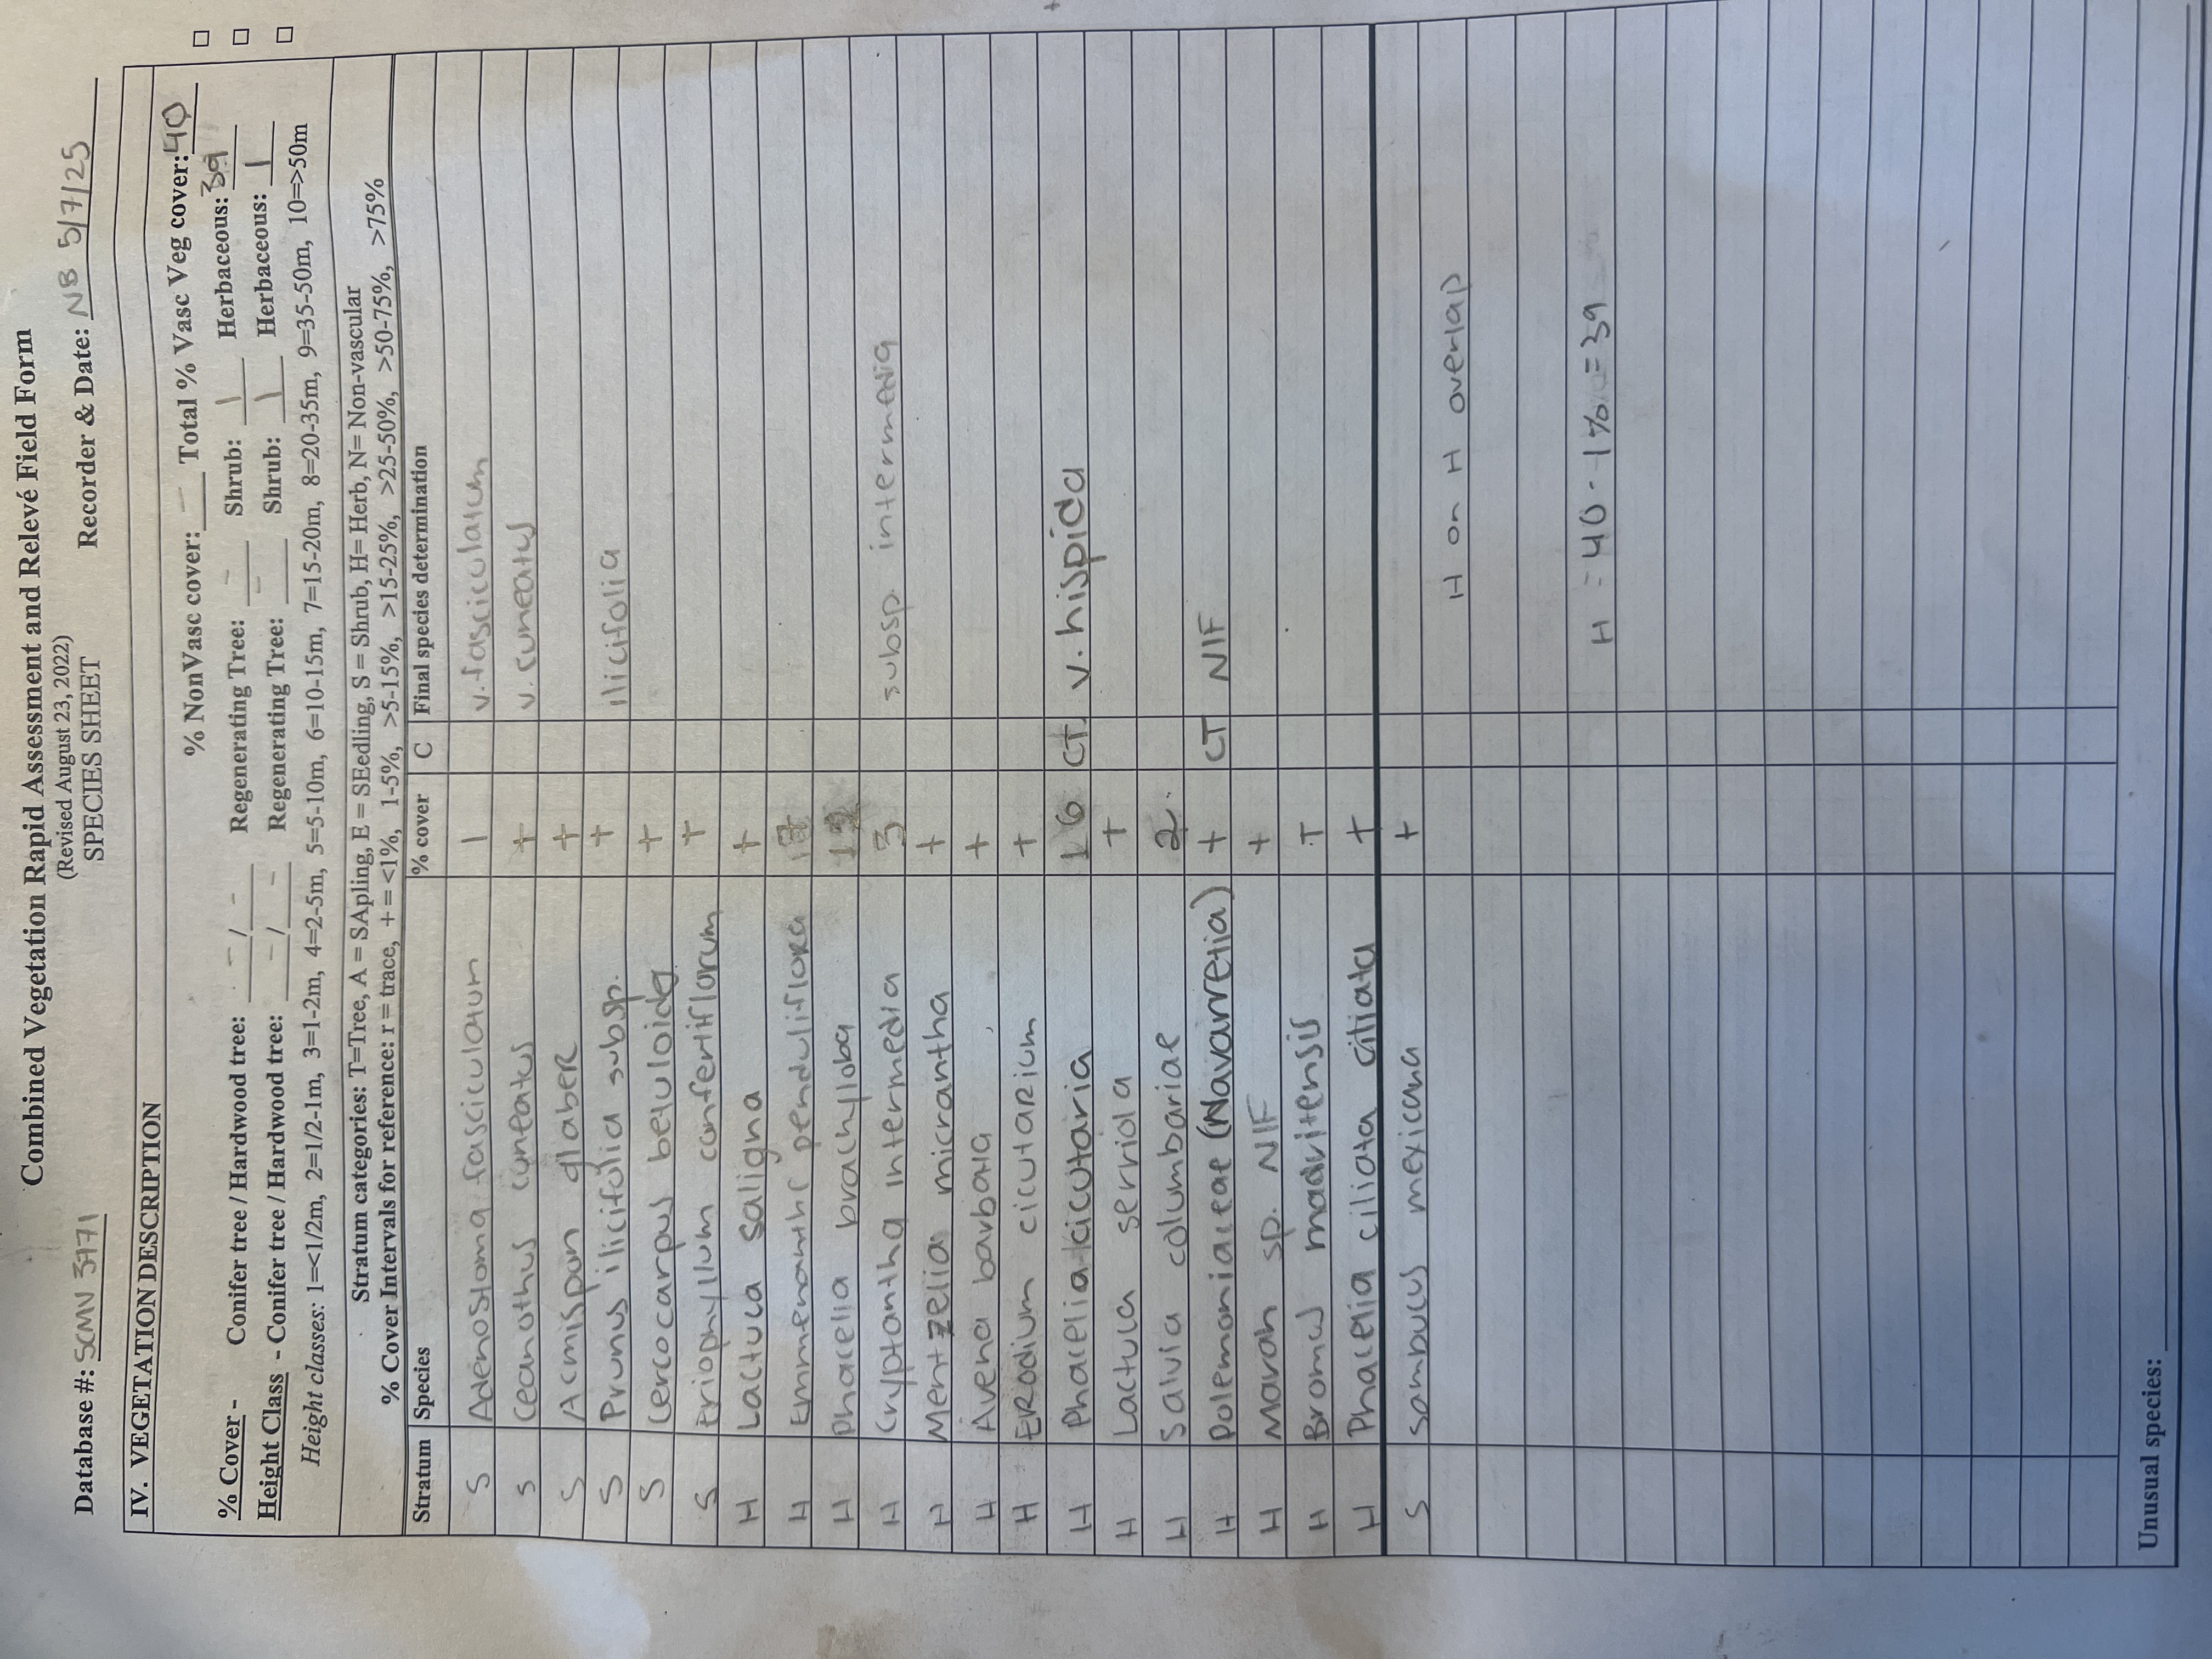 Combined Vegetation Rapid Assessment and Relevé Field Form
(Revised August 23, 2022)
SPECIES SHEET
Database #: SCMV 3171 Recorder & Date: NB 5/7/25
IV. VEGETATION DESCRIPTION
% NonVasc cover: — Total % Vasc Veg cover: 40
% Cover - Conifer tree / Hardwood tree: - / - Regenerating Tree: - Shrub: 1 Herbaceous: 39
Height Class - Conifer tree / Hardwood tree: - / - Regenerating Tree: - Shrub: 1 Herbaceous: 1
Height classes: 1=<1/2m, 2=1/2-1m, 3=1-2m, 4=2-5m, 5=5-10m, 6=10-15m, 7=15-20m, 8=20-35m, 9=35-50m, 10=>50m
Stratum categories: T=Tree, A = SApling, E = SEedling, S = Shrub, H= Herb, N= Non-vascular
% Cover Intervals for reference: r = trace, + = <1%, 1-5%, >5-15%, >15-25%, >25-50%, >50-75%, >75%
Stratum Species % cover C Final species determination
S Adenostoma fasciculatum 1 v. fasciculatum
S Ceanothus cuneatus + v. cuneatus
S Acmispon glaber +
S Prunus ilicifolia subsp. + ilicifolia
S Cercocarpus betuloides +
S Eriophyllum confertiflorum +
H Lactuca saligna +
H Emmenanthe penduliflora
H Phacelia brachyloba
H Cryptantha intermedia 3 subsp. intermedia
H Mentzelia micrantha +
H Avena barbata +
H Erodium cicutarium +
H Phacelia cicutaria 16 CT v. hispida
H Lactuca serriola +
H Salvia columbariae 2
H Polemoniaceae (Navarretia) + CT NIF
H Marah sp. NIF +
H Bromus madritensis +
H Phacelia ciliata ciliata +
S Sambucus mexicana +
H on H overlap
H = 40 - 1% = 39
Unusual species: